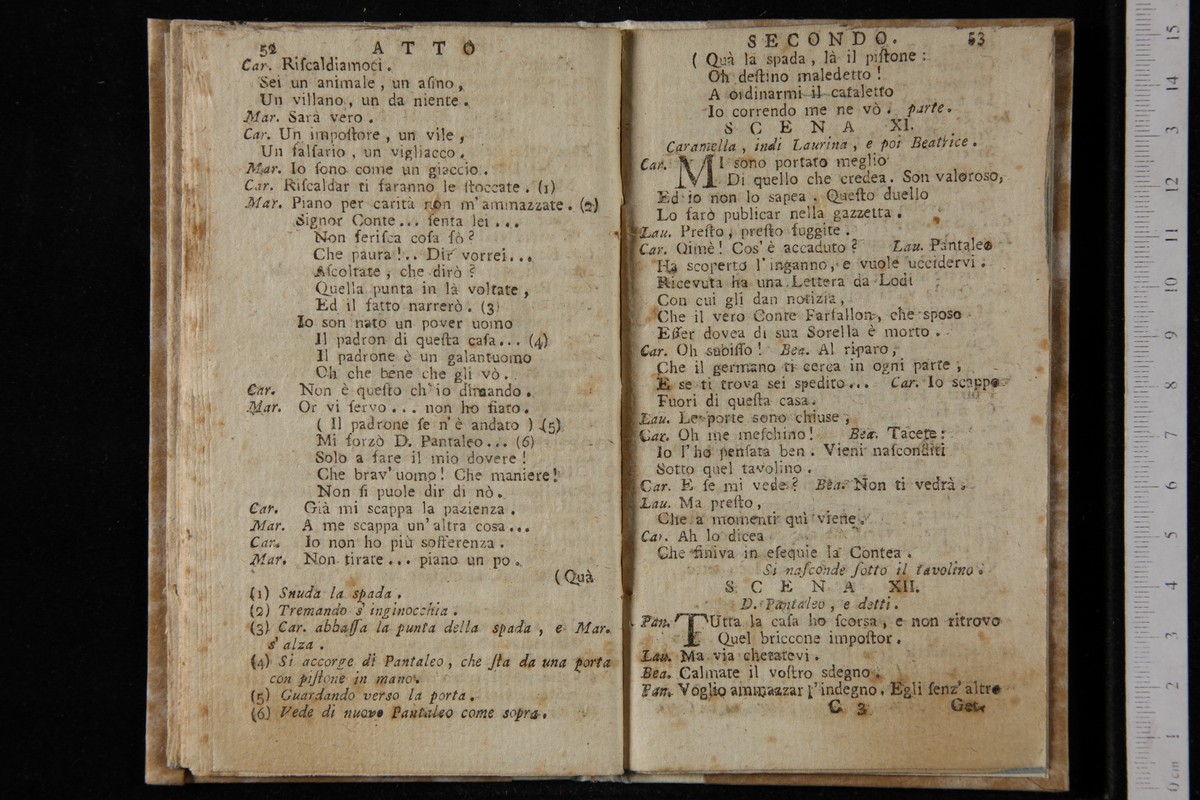 52 ATTO
Car. Riſcaldiamoci.
Sei un animale, un aſino,
Un villano, un da niente.
Mar. Sarà vero.
Car. Un impoſtore, un vile,
Un falſario, un vigliacco.
Mar. Io ſono come un giaccio.
Car. Riſcaldar ti faranno le ſtoccate. (1)
Mar. Piano per carità non m'ammazzate. (2)
Signor Conte... ſenta lei...
Non feriſca coſa fò?
Che paura!.. Dir vorrei...
Aſcoltate, che dirò?
Quella punta in là voltate,
Ed il fatto narrerò. (3)
Io son nato un pover uomo
Il padron di queſta caſa... (4)
Il padrone è un galantuomo
Oh che bene che gli vò.
Car. Non è queſto ch'io dimando.
Mar. Or vi ſervo... non ho fiato.
( Il padrone ſe n'è andato ) (5)
Mi forzò D. Pantaleo... (6)
Solo a fare il mio dovere!
Che brav'uomo! Che maniere!
Non ſi puole dir di nò.
Car. Già mi scappa la pazienza.
Mar. A me scappa un'altra cosa...
Car. Io non ho più sofferenza.
Mar. Non tirate... piano un po.
(Quà
(1) Snuda la spada.
(2) Tremando s'inginocchia.
(3) Car. abbaſſa la punta della spada, e Mar.
s'alza.
(4) Si accorge di Pantaleo, che ſta da una porta
con piſtone in mano.
(5) Guardando verso la porta.
(6) Vede di nuovo Pantaleo come sopra.
SECONDO. 53
( Quà la spada, là il piſtone:
Oh deſtino maledetto!
A ordinarmi il cataletto
Io correndo me ne vò. parte.
SCENA XI.
Caramella, indi Laurina, e poi Beatrice.
Car. MI sono portato meglio
Di quello che credea. Son valoroso,
Ed io non lo sapea. Queſto duello
Lo farò publicar nella gazzetta.
Lau. Preſto, preſto fuggite.
Car. Oimè! Cos'è accaduto? Lau. Pantaleo
Ha scoperto l'inganno, e vuole uccidervi.
Ricevuta ha una Lettera da Lodi
Con cui gli dan notizia,
Che il vero Conte Farfallon, che sposo
Eſſer dovea di sua Sorella è morto.
Car. Oh subiſſo! Bea. Al riparo,
Che il germano ti cerca in ogni parte,
E se ti trova sei spedito... Car. Io scappo
Fuori di queſta casa.
Lau. Le porte sono chiuse,
Car. Oh me meſchino! Bea. Tacete:
Io l'ho penſata ben. Vieni naſconditi
Sotto quel tavolino.
Car. E ſe mi vede? Bea. Non ti vedrà.
Lau. Ma preſto,
Che a momenti quì viene.
Car. Ah lo dicea
Che finiva in eſequie la Contea.
Si naſconde ſotto il tavolino.
SCENA XII.
D. Pantaleo, e detti.
Pan. TUtta la caſa ho ſcorsa, e non ritrovo
Quel briccone impoſtor.
Lau. Ma via chetatevi.
Bea. Calmate il voſtro sdegno.
Pan. Voglio ammazzar l'indegno. Egli ſenz'altro
C 3 Get-